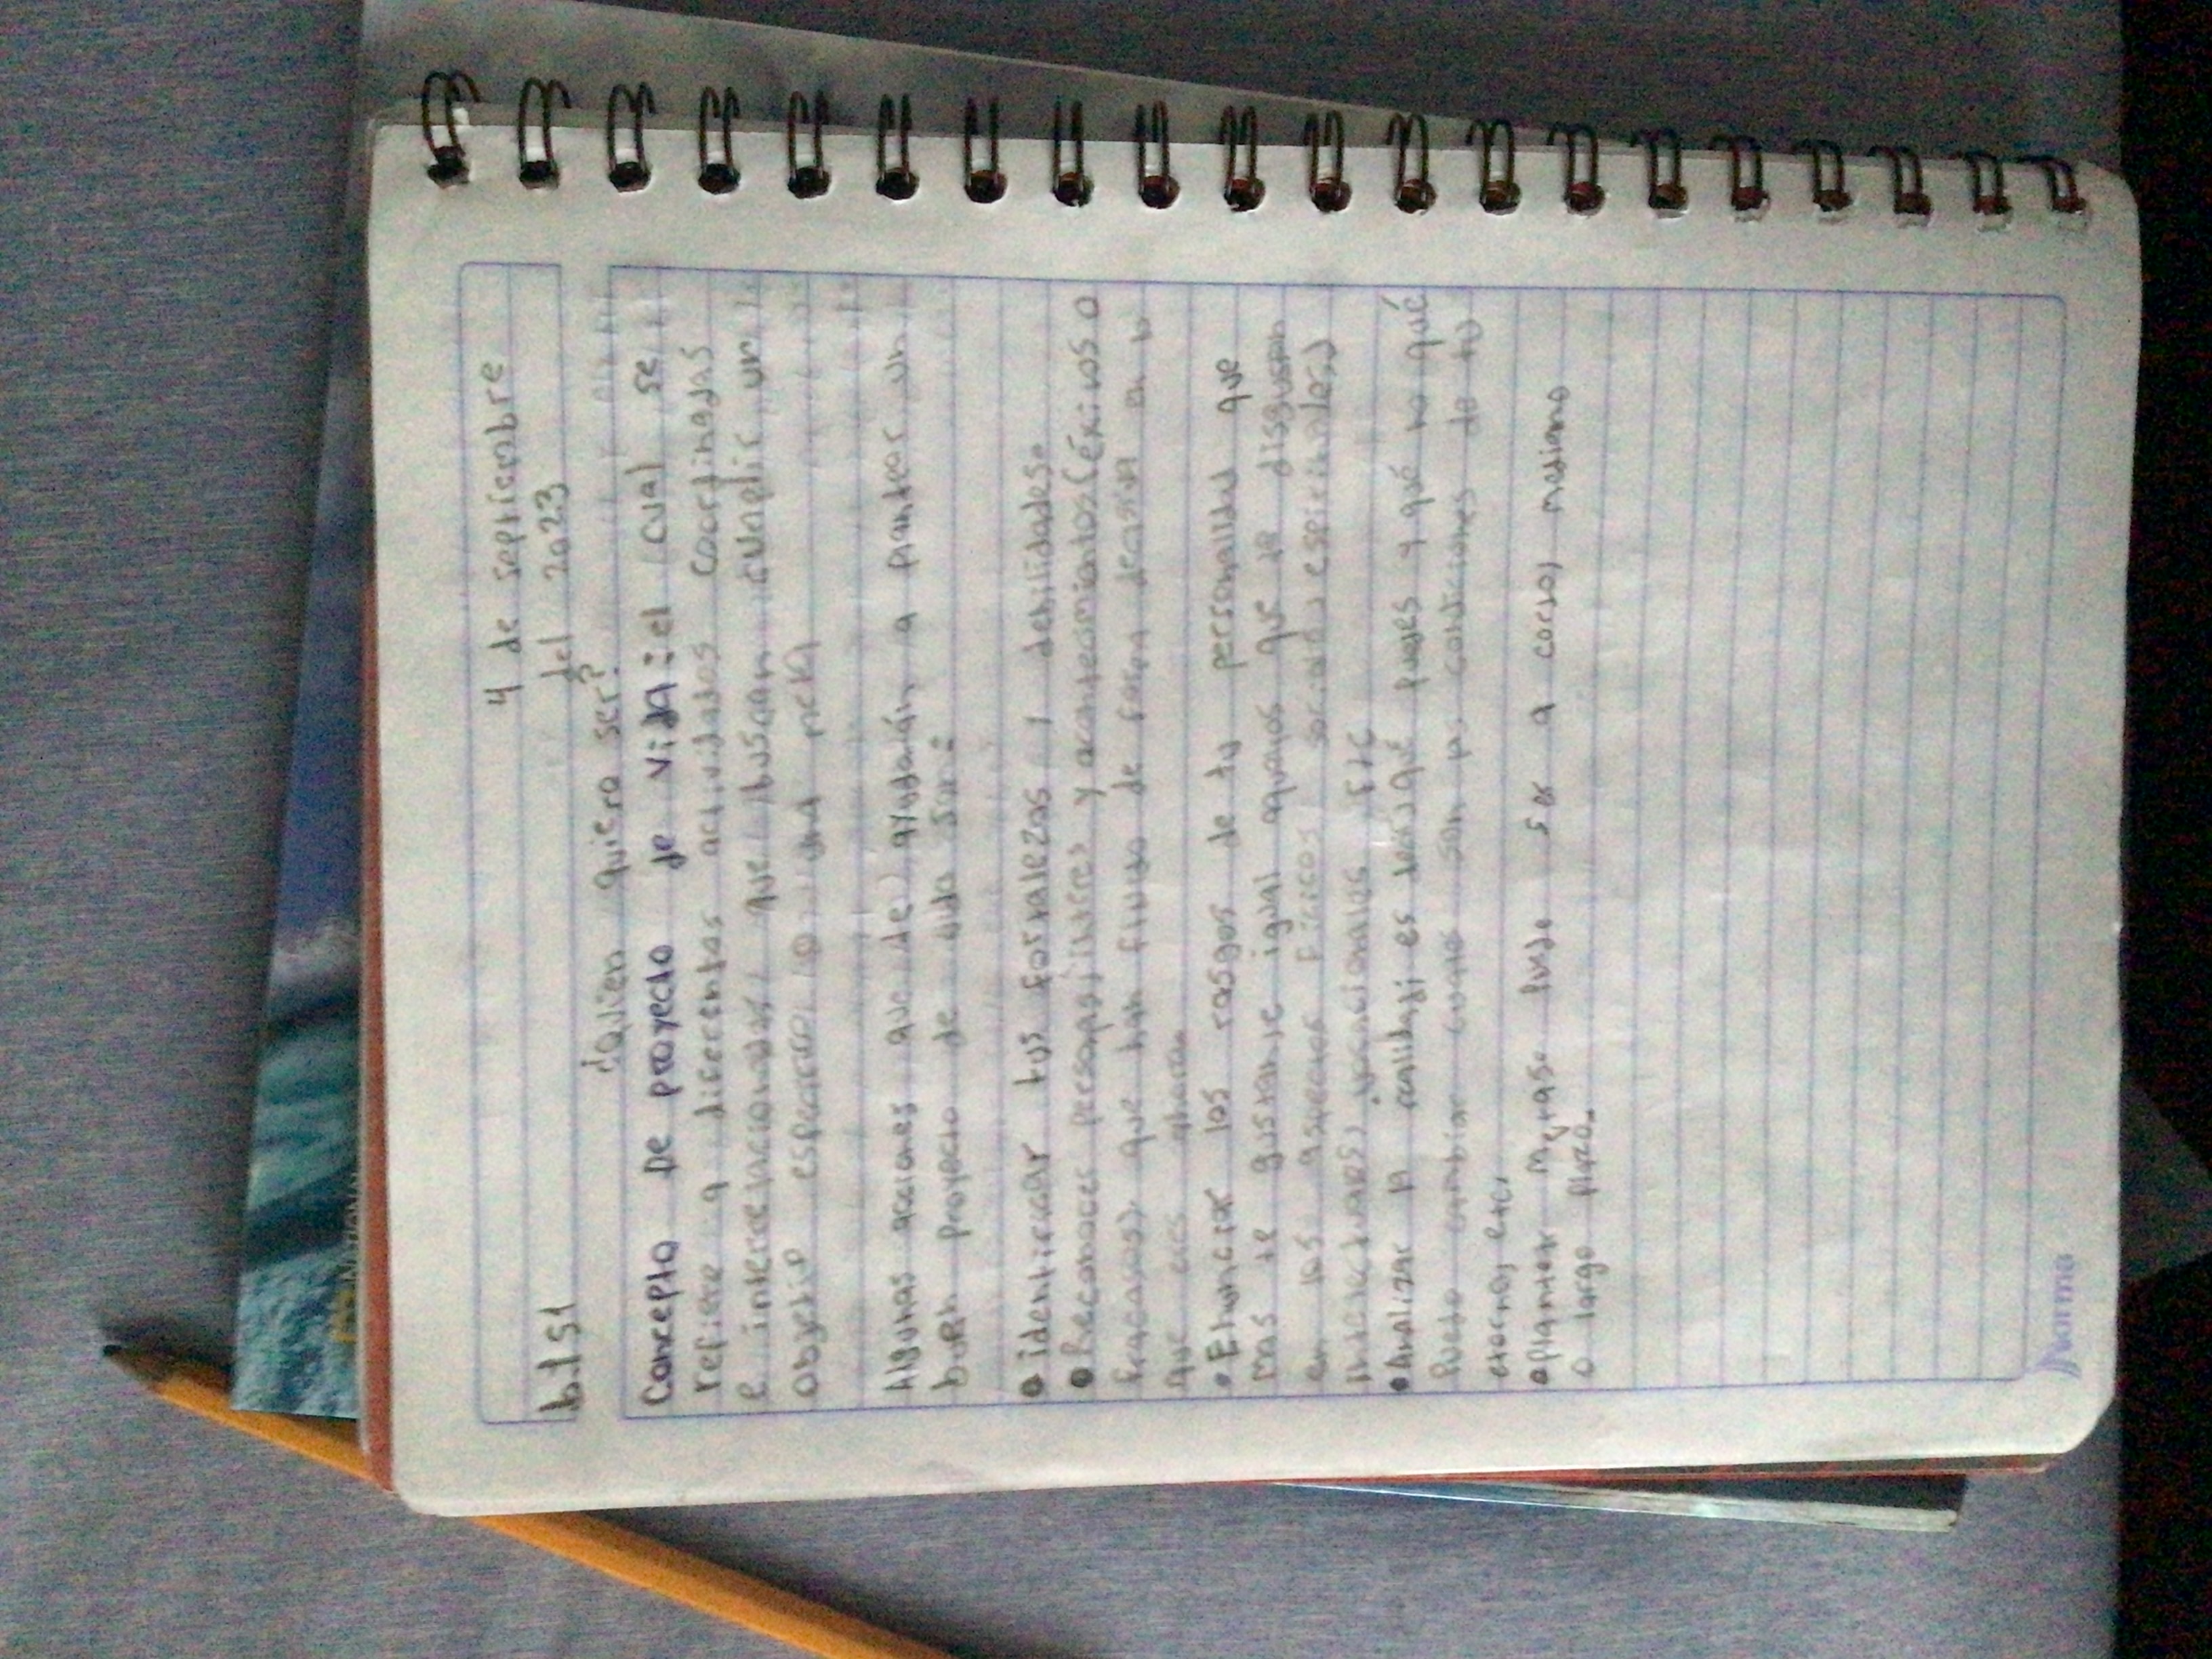 4 de septiembre
del 2023
b1s1
¿quien quiero ser?
Concepto De proyecto de vida: el cual se
refiere a diferentas actividades coordinadas
e interrelacionadas que buscan cumplir un
objetivo especifico o una meta
Algunas acciones que te ayudarán a plantear un
buen proyecto de vida son:
• identificar tus fortalezas y debilidades.
• Reconocer y acontecimientos (éxitos o
fracasos) que han de forma decisiva en lo
que eres ahora.
• Enunciar los rasgos de tu personalidad que
mas te gustan e igual aquellos que te disgustan
en los aspectos Físicos sociales espirituales,
intelectuales, vocacionales, etc
• Analizar la realidad: es decir, qué puedes y qué no qué
puedo cambiar cuales son las condiciones de tu
etc.
• plantear metas. puede ser a corto, mediano
o largo plazo.
Norma